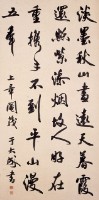 淡墨秋山畫遠天暮霞
還照紫添烟故人好在
重攜手不到平山漫
五年
上章閹茂 于大成書